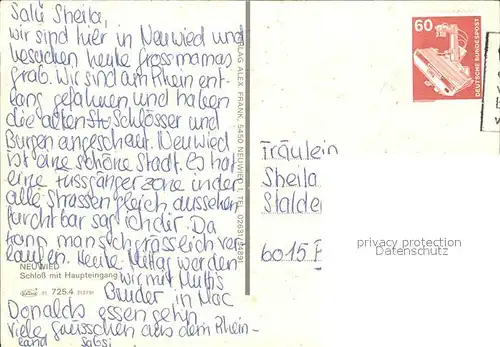 Salü Sheila,
wir sind hier in Neuwied und
besuchen heute grossmamas
grab. Wir sind am Rhein ent-
lang gefahren und haben
die ältensten Schlösser und
Burgen angeschaut. Neuwied
ist eine schöne Stadt. Es hat
eine Fussgängerzone in der
alle Strassen gleich aussehen
furchtbar sag ich dir. Da
kann man sich grässlich ver-
laufen. Heute Mittag werden
wir mit Muttis
Bruder in Mac
Donalds essen gehn
viele Grüsschen aus dem Rhein-
land
NEUWIED
Schloß mit Haupteingang
725.4
VERLAG ALEX. FRANK, 5450 NEUWIED 1, TEL. 02631/
60
DEUTSCHE BUNDESPOST
Fräulein
Sheila
Stalder
6015
privacy protection
Datenschutz